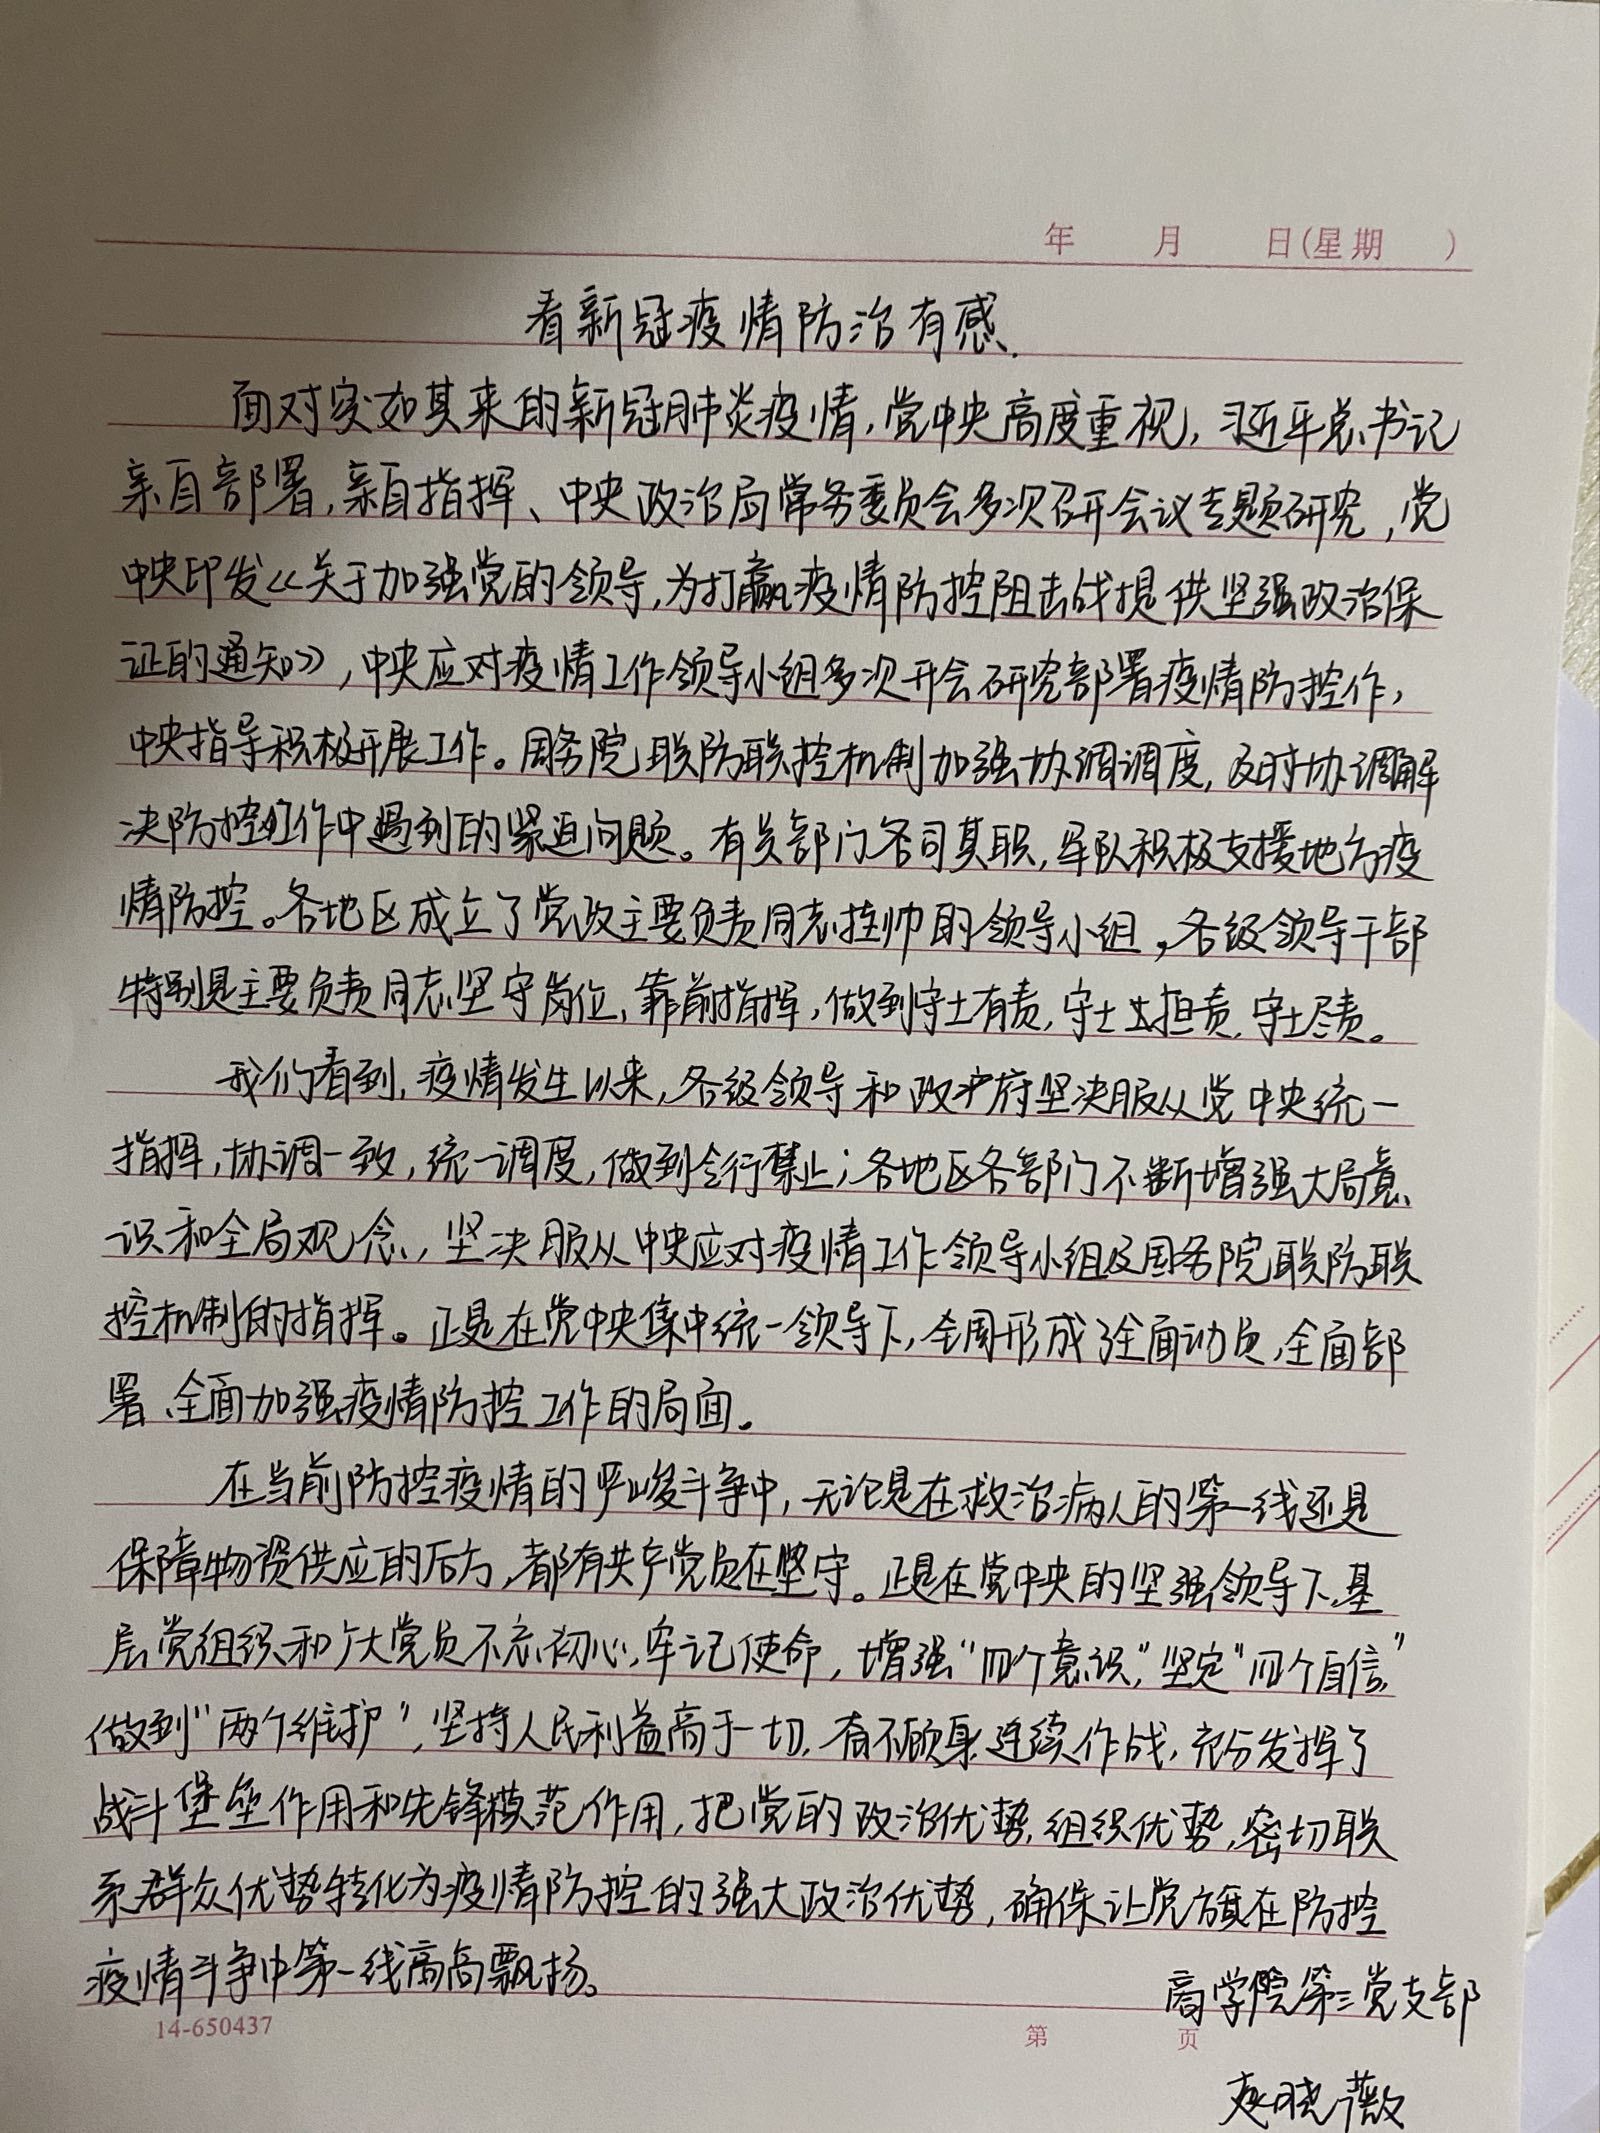 年 月 日(星期 )
看新冠疫情防治有感.
面对突如其来的新冠肺炎疫情,党中央高度重视,习近平总书记
亲自部署,亲自指挥、中央政治局常务委员会多次召开会议专题研究,党
中央印发《关于加强党的领导,为打赢疫情防控阻击战提供坚强政治保
证的通知》,中央应对疫情工作领导小组多次开会研究部署疫情防控作,
中央指导积极开展工作。国务院联防联控机制加强协调调度,及时协调解
决防控工作中遇到的紧迫问题。有关部门各司其职,军队积极支援地方疫
情防控。各地区成立了党政主要负责同志挂帅的领导小组,各级领导干部
特别是主要负责同志坚守岗位、靠前指挥,做到守土有责,守土担责,守土尽责。
我们看到,疫情发生以来,各级领导和政府坚决服从党中央统一
指挥,协调一致,统一调度,做到令行禁止;各地区各部门不断增强大局意
识和全局观念,坚决服从中央应对疫情工作领导小组及国务院联防联
控机制的指挥。正是在党中央集中统一领导下,全国形成了全面动员,全面部
署、全面加强疫情防控工作的局面。
在当前防控疫情的严峻斗争中,无论是在救治病人的第一线还是
保障物资供应的后方,都有共产党员在坚守。正是在党中央的坚强领导下,基
层党组织和广大党员不忘初心,牢记使命,增强“四个意识”,坚定“四个自信”
做到“两个维护”,坚持人民利益高于一切,奋不顾身,连续作战,充分发挥了
战斗堡垒作用和先锋模范作用,把党的政治优势,组织优势,密切联
系群众优势转化为疫情防控的强大政治优势,确保让党旗在防控
疫情斗争中第一线高高飘扬。
商学院第三党支部
14-650437 第 页
赵晓薇